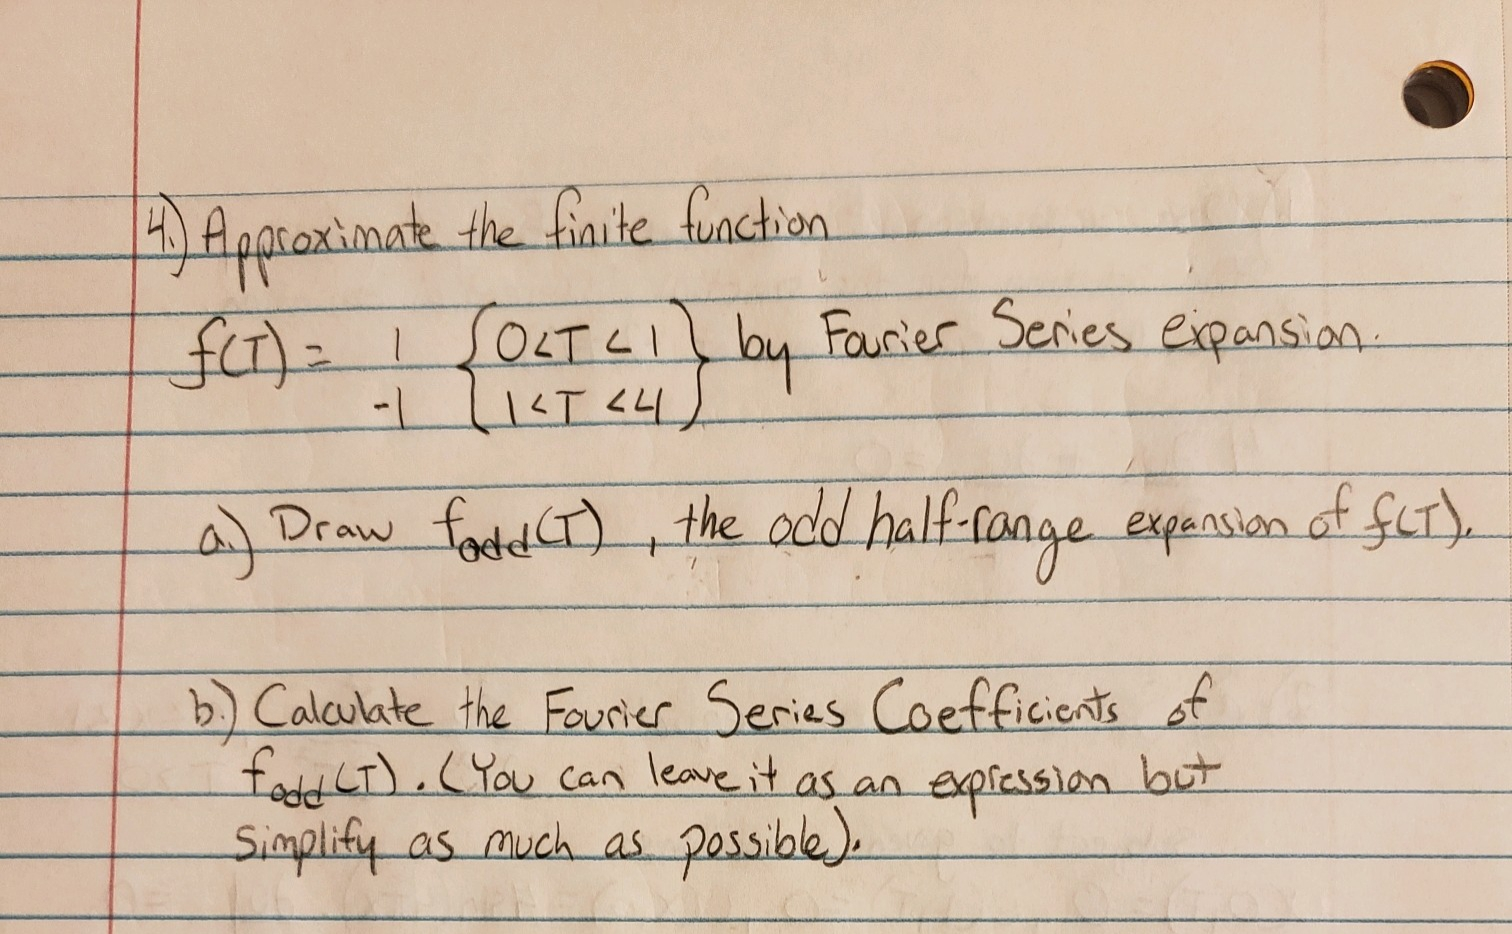 4.) Approximate the finite function
f(T) = 1 {0<T<1} by Fourier Series expansion.
-1 {1<T<4}
a.) Draw fodd(T), the odd half-range expansion of f(T).
b.) Calculate the Fourier Series Coefficients of
fodd(T). (You can leave it as an expression but
simplify as much as possible).